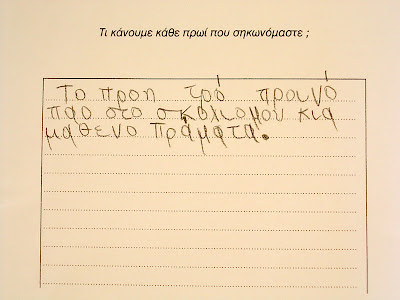 Τι κάνουμε κάθε πρωί που σηκωνόμαστε ;
Το προη τρό προινό
παο στο σκολιομου κια
μαθενο πράματα.